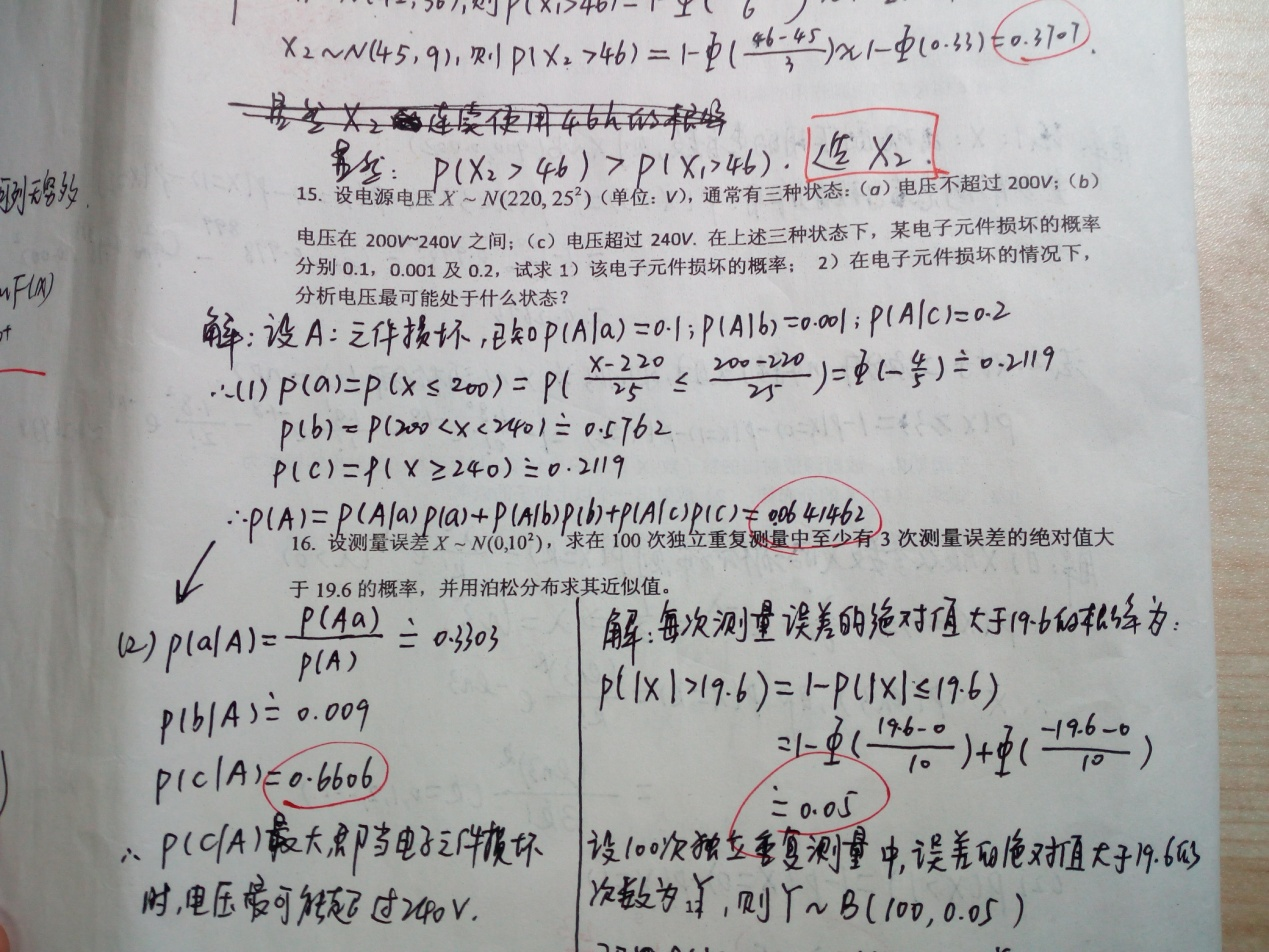 X₂~N(45,9),则P(X₂>46)=1-Φ(46-45/3)≈1-Φ(0.33)=0.3707.
显然: P(X₂>46)>P(X₁>46). 选X₂.
15. 设电源电压 X ~ N(220, 25²)(单位:V),通常有三种状态:(a)电压不超过 200V;(b)
电压在 200V~240V 之间;(c)电压超过 240V. 在上述三种状态下,某电子元件损坏的概率
分别 0.1,0.001 及 0.2,试求 1)该电子元件损坏的概率; 2)在电子元件损坏的情况下,
分析电压最可能处于什么状态?
解:设A:元件损坏,已知P(A|a)=0.1;P(A|b)=0.001;P(A|c)=0.2
∴(1) P(a)=P(X≤200)=P(X-220/25≤200-220/25)=Φ(-4/5)≐0.2119
P(b)=P(200<X<240)≐0.5762
P(C)=P(X≥240)≐0.2119
∴P(A)=P(A|a)P(a)+P(A|b)P(b)+P(A|c)P(C)=0.0641462
16. 设测量误差 X ~ N(0,10²),求在 100 次独立重复测量中至少有 3 次测量误差的绝对值大
于 19.6 的概率,并用泊松分布求其近似值。
(2) P(a|A)=P(Aa)/P(A)≐0.3303
P(b|A)≐0.009
P(c|A)=0.6606
∴ P(C|A)最大,即当电子元件损坏
时,电压最可能超过240V.
解:每次测量误差的绝对值大于19.6的概率为:
P(|X|>19.6)=1-P(|X|≤19.6)
=1-Φ(19.6-0/10)+Φ(-19.6-0/10)
≐0.05
设100次独立重复测量中,误差的绝对值大于19.6的
次数为Y,则Y~B(100,0.05)